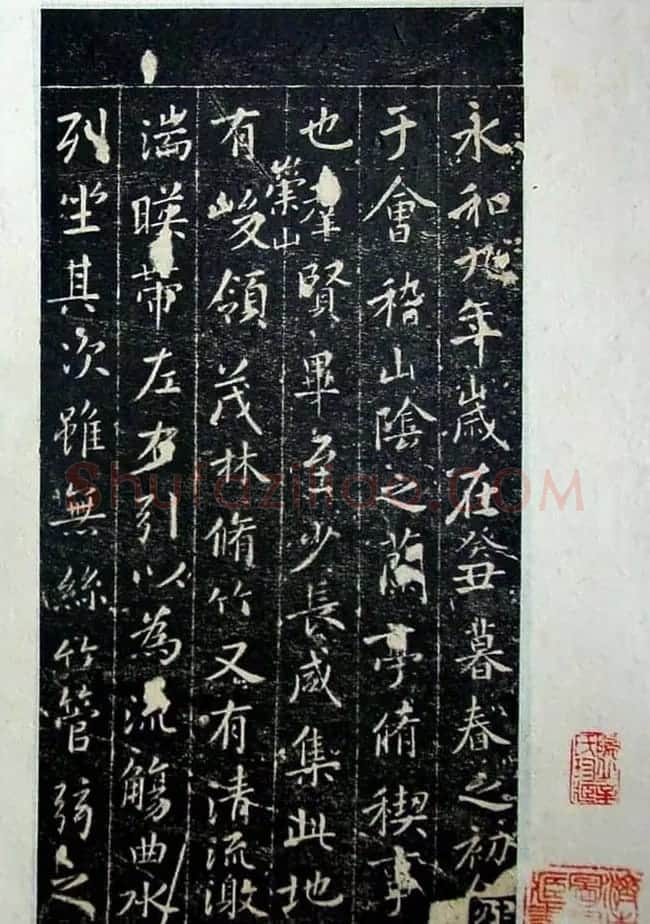 永和九年歲在癸丑暮春之初
于會稽山陰之蘭亭脩稧事
也羣賢畢至少長咸集此地
崇山
有峻領茂林脩竹又有清流激
湍暎帶左右引以為流觴曲水
列坐其次雖無絲竹管弦之
Shufaziliao.COM